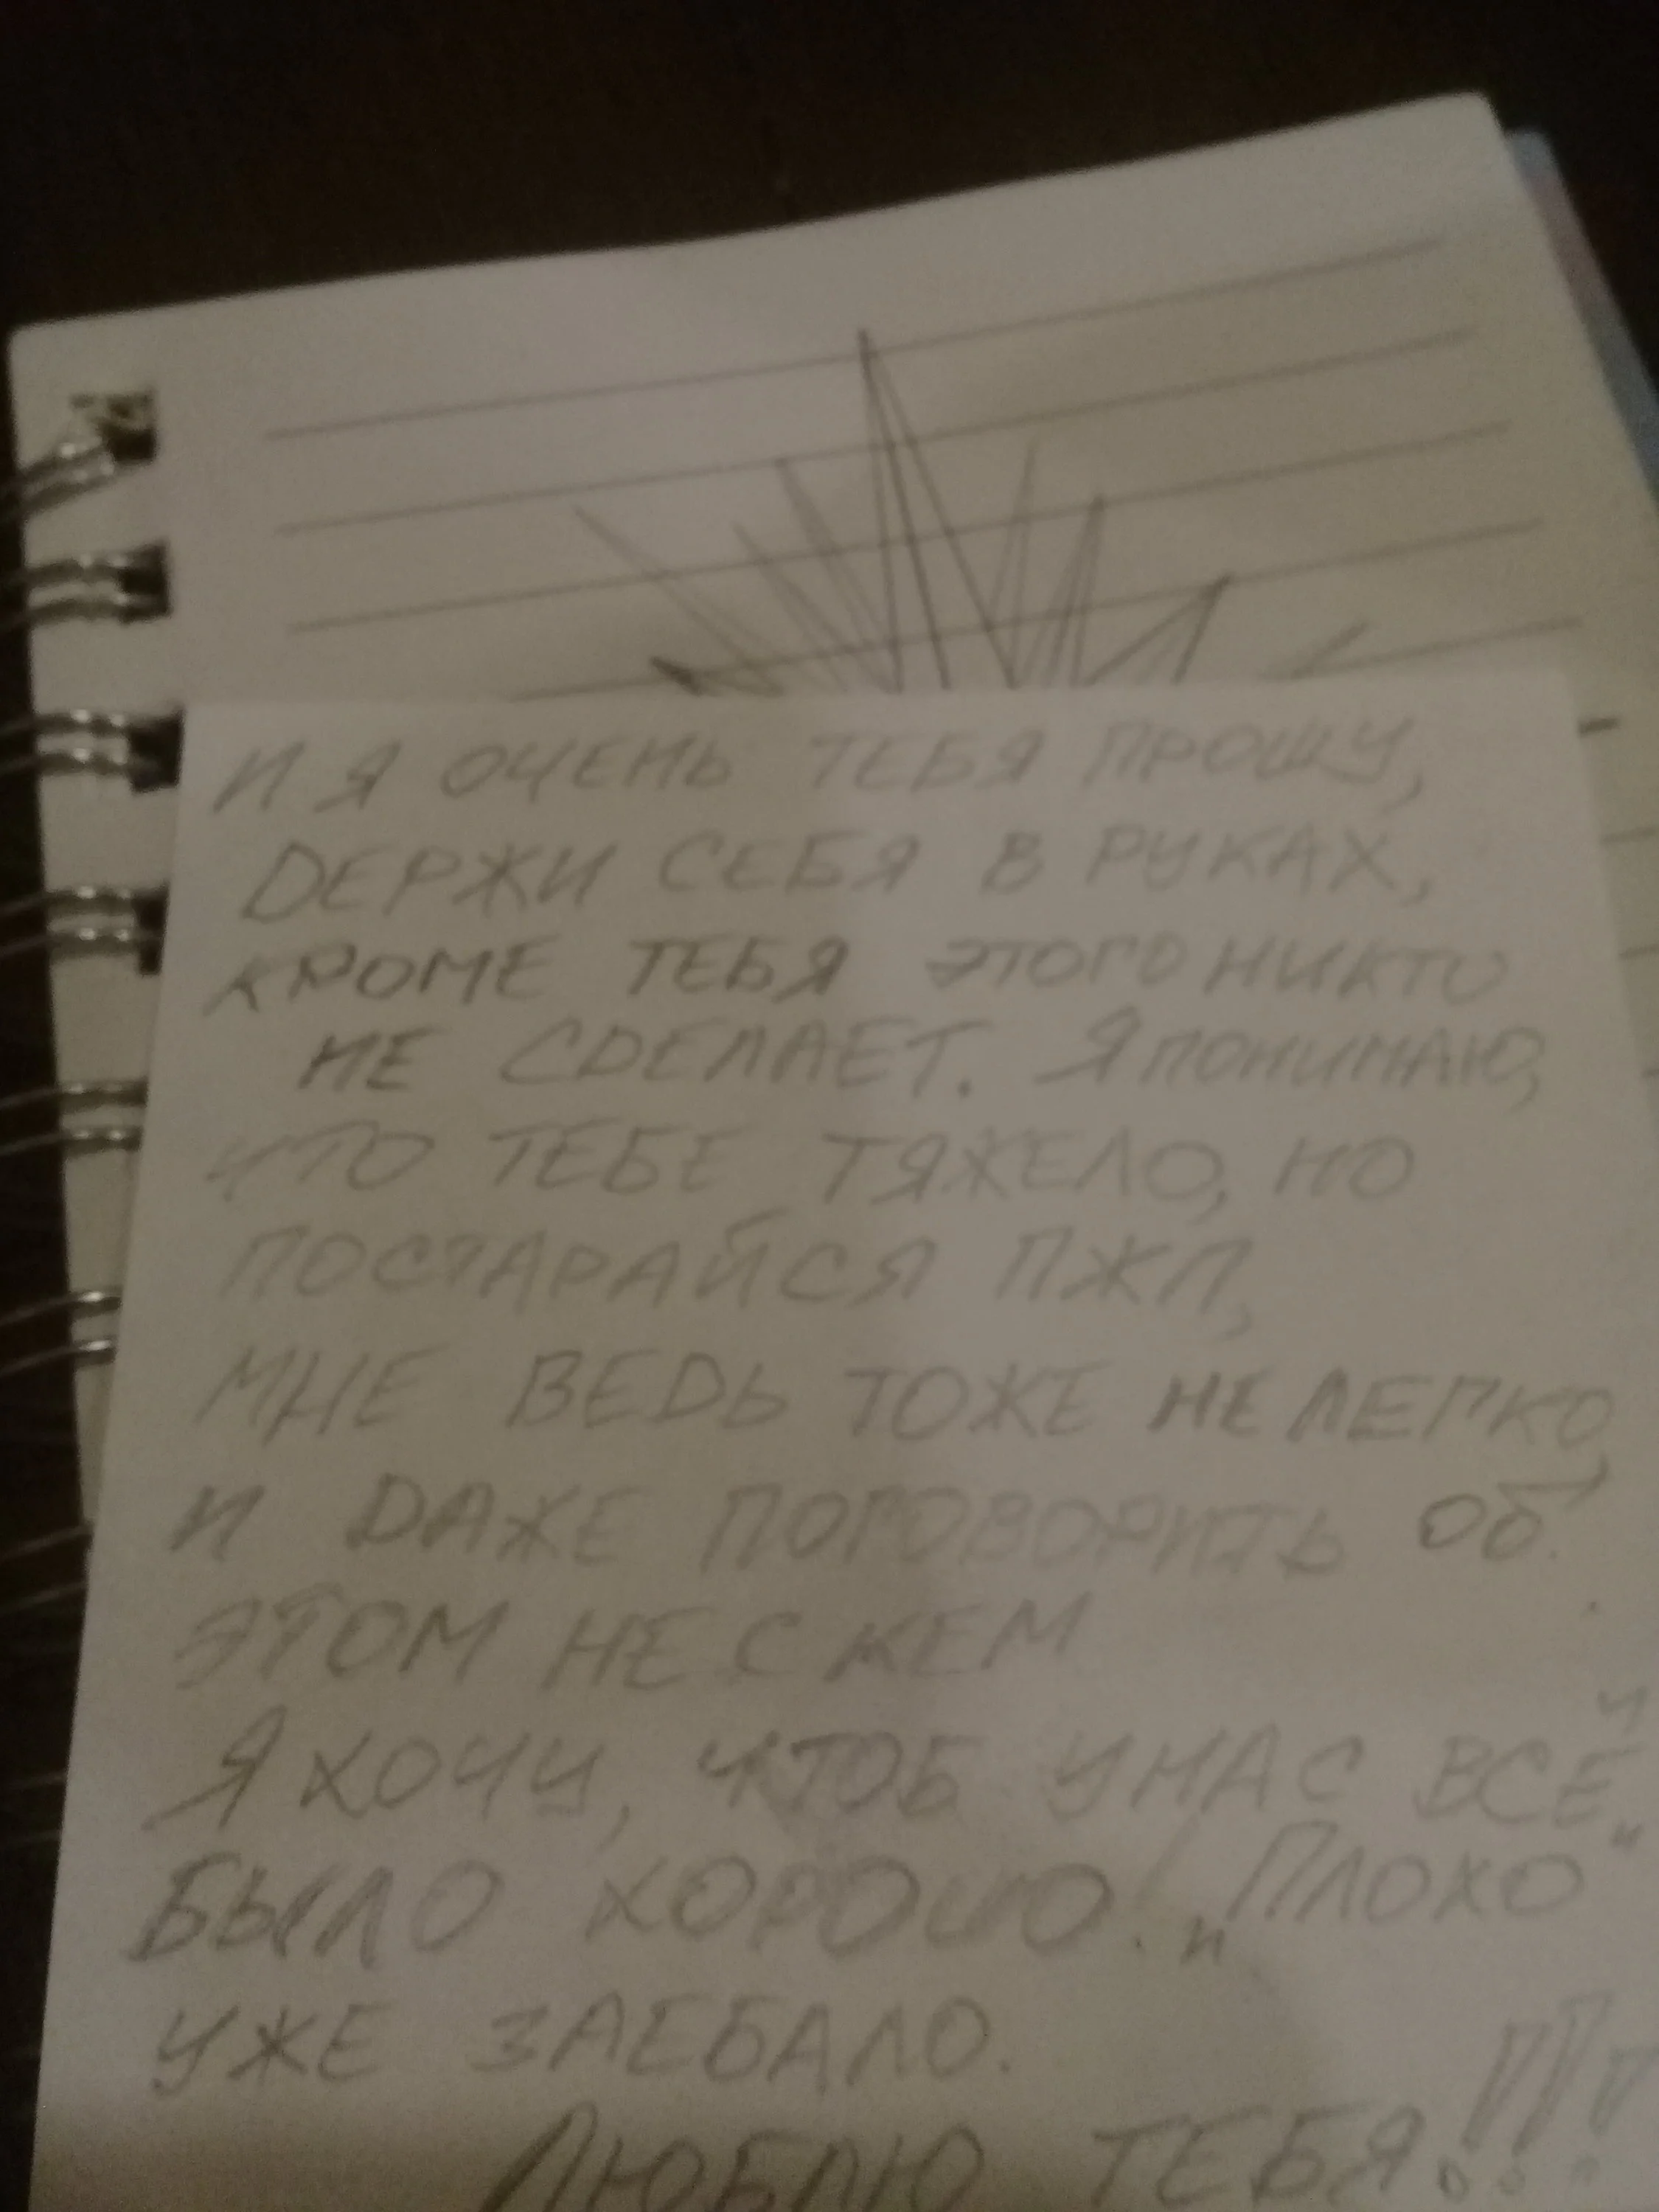 И Я ОЧЕНЬ ТЕБЯ ПРОШУ,
ДЕРЖИ СЕБЯ В РУКАХ,
КРОМЕ ТЕБЯ ЭТОГО НИКТО
НЕ СДЕЛАЕТ. Я ПОНИМАЮ,
ЧТО ТЕБЕ ТЯЖЕЛО, НО
ПОСТАРАЙСЯ ПЖЛ,
МНЕ ВЕДЬ ТОЖЕ НЕ ЛЕГКО,
И ДАЖЕ ПОГОВОРИТЬ ОБ
ЭТОМ НЕ С КЕМ
Я ХОЧУ, ЧТОБ У НАС ВСЁ
БЫЛО ХОРОШО. "ПЛОХО"
УЖЕ ЗАЕБАЛО.
ЛЮБЛЮ ТЕБЯ!!!